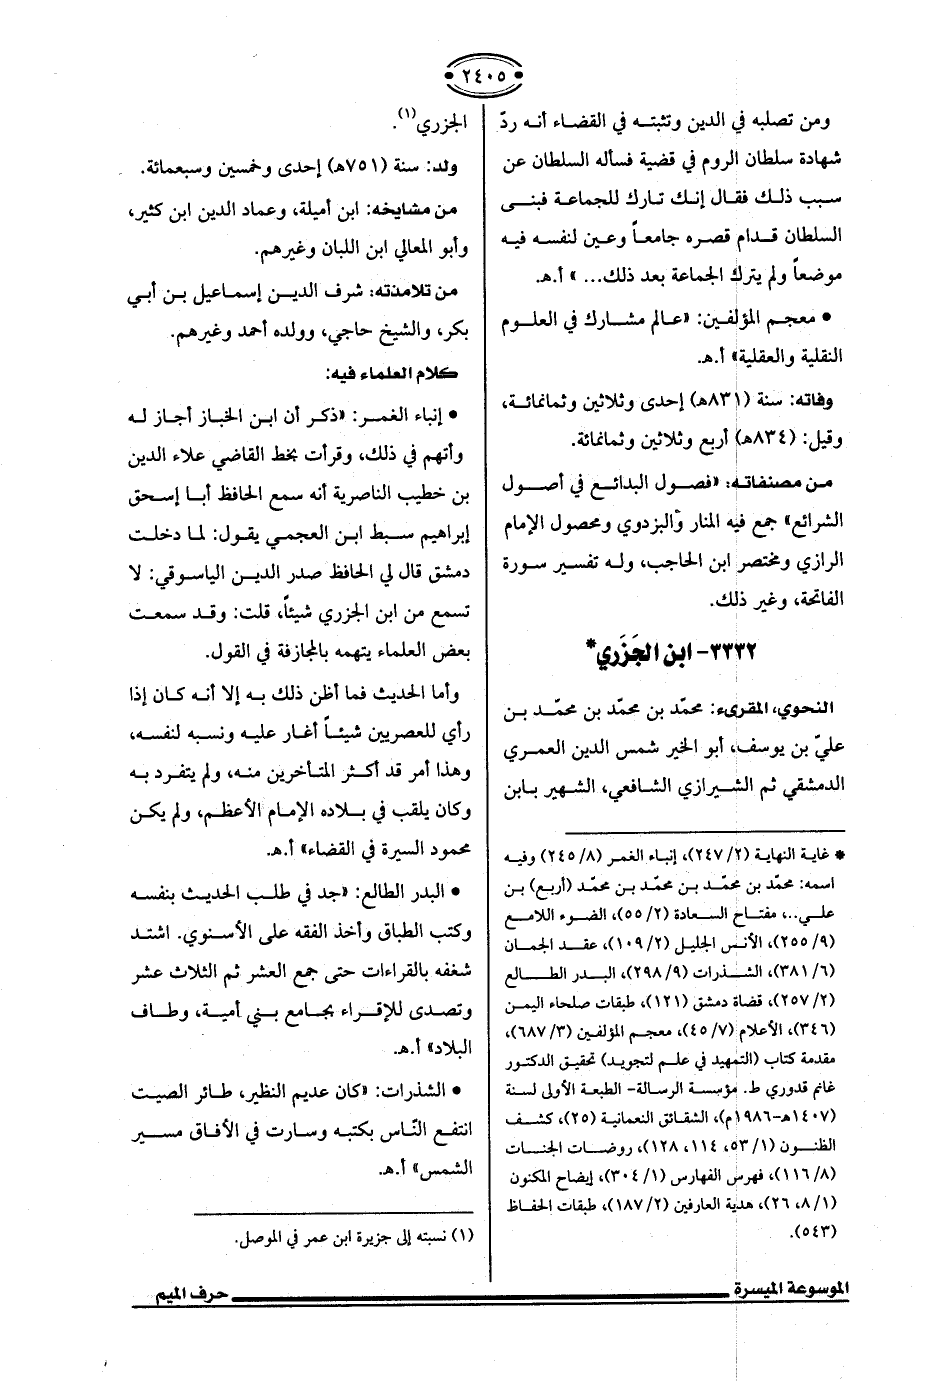 ٢٤٠٥
ومن تصلبه في الدين وتثبته في القضاء أنه ردّ
شهادة سلطان الروم في قضية فسأله السلطان عن
سبب ذلك فقال إنك تارك للجماعة فبنى
السلطان قدام قصره جامعاً وعين لنفسه فيه
موضعاً ولم يترك الجماعة بعد ذلك... » أ.هـ.
• معجم المؤلفين: «عالم مشارك في العلوم
النقلية والعقلية» أ.هـ.
وفاته: سنة (٨٣١هـ) إحدى وثلاثين وثمانمائة،
وقيل: (٨٣٤هـ) أربع وثلاثين وثمانمائة.
من مصنفاته: «فصول البدائع في أصول
الشرائع» جمع فيه المنار والبزدوي ومحصول الإمام
الرازي ومختصر ابن الحاجب، وله تفسير سورة
الفاتحة، وغير ذلك.
٣٣٣٢- ابن الجَزَري*
النحوي، المقرىء: محمّد بن محمّد بن محمّد بن
عليّ بن يوسف، أبو الخير شمس الدين العمري
الدمشقي ثم الشيرازي الشافعي، الشهير بابن
* غاية النهاية (٢/ ٢٤٧)، إنباء الغمر (٨/ ٢٤٥) وفيه
اسمه: محمّد بن محمّد بن محمّد بن محمّد (أربع) بن
علي..، مفتاح السعادة (٢/ ٥٥)، الضوء اللامع
(٩/ ٢٥٥)، الأنس الجليل (٢/ ١٠٩)، عقد الجمان
(٦/ ٣٨١)، الشذرات (٩/ ٢٩٨)، البدر الطالع
(٢/ ٢٥٧)، قضاة دمشق (١٢١)، طبقات صلحاء اليمن
(٣٤٦)، الأعلام (٧/ ٤٥)، معجم المؤلفين (٣/ ٦٨٧)،
مقدمة كتاب (التمهيد في علم لتجويد) تحقيق الدكتور
غانم قدوري ط. مؤسسة الرسالة- الطبعة الأولى لسنة
(١٤٠٧هـ-١٩٨٦م)، الشقائق النعمانية (٢٥)، كشف
الظنون (١/ ٥٣، ١١٤، ١٢٨)، روضات الجنات
(٨/ ١١٦)، فهرس الفهارس (١/ ٣٠٤)، إيضاح المكنون
(١/ ٨، ٢٦)، هدية العارفين (٢/ ١٨٧)، طبقات الحفاظ
(٥٤٣).
الجزري(١).
ولد: سنة (٧٥١هـ) إحدى وخمسين وسبعمائة.
من مشايخه: ابن أميلة، وعماد الدين ابن كثير،
وأبو المعالي ابن اللبان وغيرهم.
من تلامذته: شرف الدين إسماعيل بن أبي
بكر، والشيخ حاجي، وولده أحمد وغيرهم.
كلام العلماء فيه:
• إنباء الغمر: «ذكر أن ابن الخباز أجاز له
وأتهم في ذلك، وقرأت بخط القاضي علاء الدين
بن خطيب الناصرية أنه سمع الحافظ أبا إسحق
إبراهيم سبط ابن العجمي يقول: لما دخلت
دمشق قال لي الحافظ صدر الدين الياسوفي: لا
تسمع من ابن الجزري شيئاً، قلت: وقد سمعت
بعض العلماء يتهمه بالمجازفة في القول.
وأما الحديث فما أظن ذلك به إلا أنه كان إذا
رأي للعصريين شيئاً أغار عليه ونسبه لنفسه،
وهذا أمر قد أكثر المتأخرين منه، ولم يتفرد به
وكان يلقب في بلاده الإمام الأعظم، ولم يكن
محمود السيرة في القضاء» أ.هـ.
• البدر الطالع: «جد في طلب الحديث بنفسه
وكتب الطباق وأخذ الفقه على الأسنوي. اشتد
شغفه بالقراءات حتى جمع العشر ثم الثلاث عشر
وتصدى للإقراء بجامع بني أمية، وطاف
البلاد» أ.هـ.
• الشذرات: «كان عديم النظير، طائر الصيت
انتفع النّاس بكتبه وسارت في الأفاق مسير
الشمس» أ.هـ.
(١) نسبته إلى جزيرة ابن عمر في الموصل.
الموسوعة الميسرة
حرف الميم